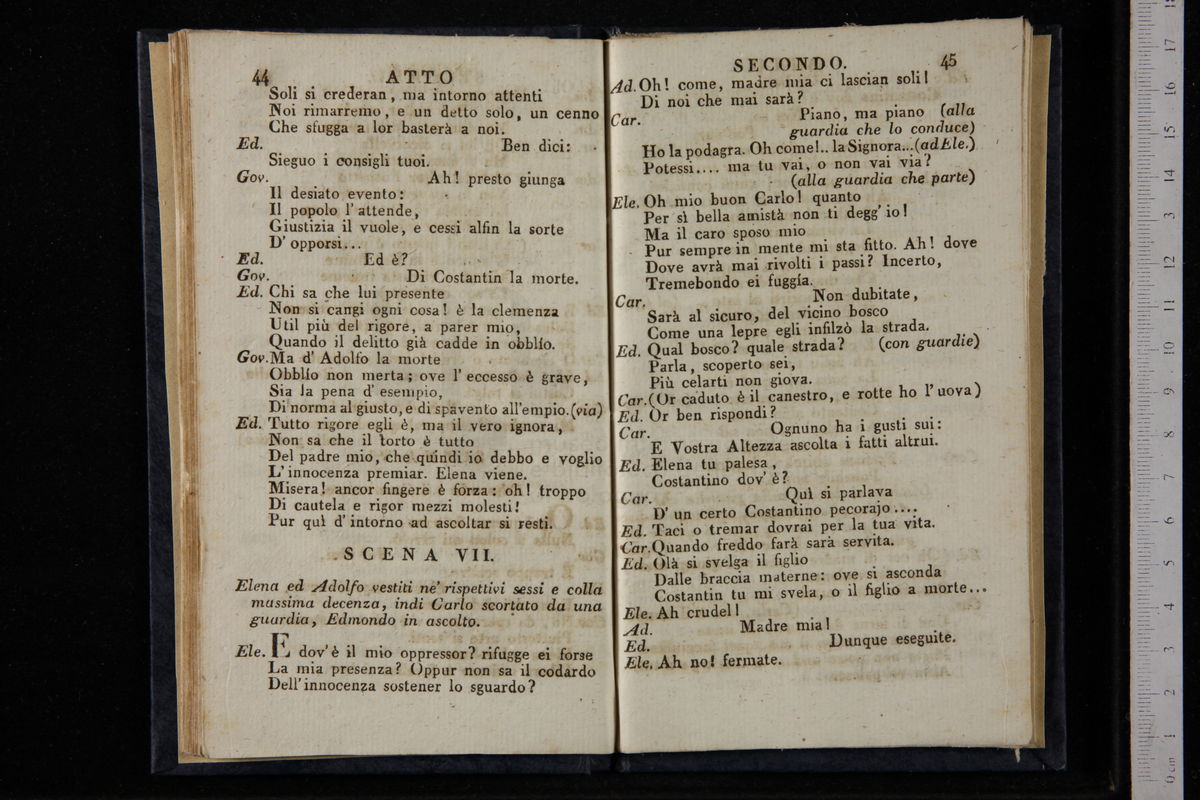 44 ATTO
Soli si crederan, ma intorno attenti
Noi rimarremo, e un detto solo, un cenno
Che sfugga a lor basterà a noi.
Ed. Ben dici:
Sieguo i consigli tuoi.
Gov. Ah! presto giunga
Il desiato evento:
Il popolo l'attende,
Giustizia il vuole, e cessi alfin la sorte
D'opporsi...
Ed. Ed è?
Gov. Di Costantin la morte.
Ed. Chi sa che lui presente
Non si cangi ogni cosa! è la clemenza
Util più del rigore, a parer mio,
Quando il delitto già cadde in obblío.
Gov. Ma d'Adolfo la morte
Obblío non merta; ove l'eccesso è grave,
Sia la pena d'esempio,
Di norma al giusto, e di spavento all'empio. (via)
Ed. Tutto rigore egli è, ma il vero ignora,
Non sa che il torto è tutto
Del padre mio, che quindi io debbo e voglio
L'innocenza premiar. Elena viene.
Misera! ancor fingere è forza: oh! troppo
Di cautela e rigor mezzi molesti!
Pur quì d'intorno ad ascoltar si resti.
SCENA VII.
Elena ed Adolfo vestiti ne' rispettivi sessi e colla
massima decenza, indi Carlo scortato da una
guardia, Edmondo in ascolto.
Ele. E dov'è il mio oppressor? rifugge ei forse
La mia presenza? Oppur non sa il codardo
Dell'innocenza sostener lo sguardo?
SECONDO. 45
Ad. Oh! come, madre mia ci lascian soli!
Di noi che mai sarà?
Car. Piano, ma piano (alla
guardia che lo conduce)
Ho la podagra. Oh come!.. la Signora...(ad Ele.)
Potessi.... ma tu vai, o non vai via?
(alla guardia che parte)
Ele. Oh mio buon Carlo! quanto
Per sì bella amistà non ti degg'io!
Ma il caro sposo mio
Pur sempre in mente mi sta fitto. Ah! dove
Dove avrà mai rivolti i passi? Incerto,
Tremebondo ei fuggía.
Car. Non dubitate,
Sarà al sicuro, del vicino bosco
Come una lepre egli infilzò la strada.
Ed. Qual bosco? quale strada? (con guardie)
Parla, scoperto sei,
Più celarti non giova.
Car. (Or caduto è il canestro, e rotte ho l'uova)
Ed. Or ben rispondi?
Car. Ognuno ha i gusti sui:
E Vostra Altezza ascolta i fatti altrui.
Ed. Elena tu palesa,
Costantino dov'è?
Car. Quì si parlava
D'un certo Costantino pecorajo....
Ed. Taci o tremar dovrai per la tua vita.
Car. Quando freddo farà sarà servita.
Ed. Olà si svelga il figlio
Dalle braccia materne: ove si asconda
Costantin tu mi svela, o il figlio a morte...
Ele. Ah crudel!
Ad. Madre mia!
Ed. Dunque eseguite.
Ele. Ah no! fermate.
0 cm 1 2 3 4 5 6 7 8 9 10 11 12 13 14 15 16 17